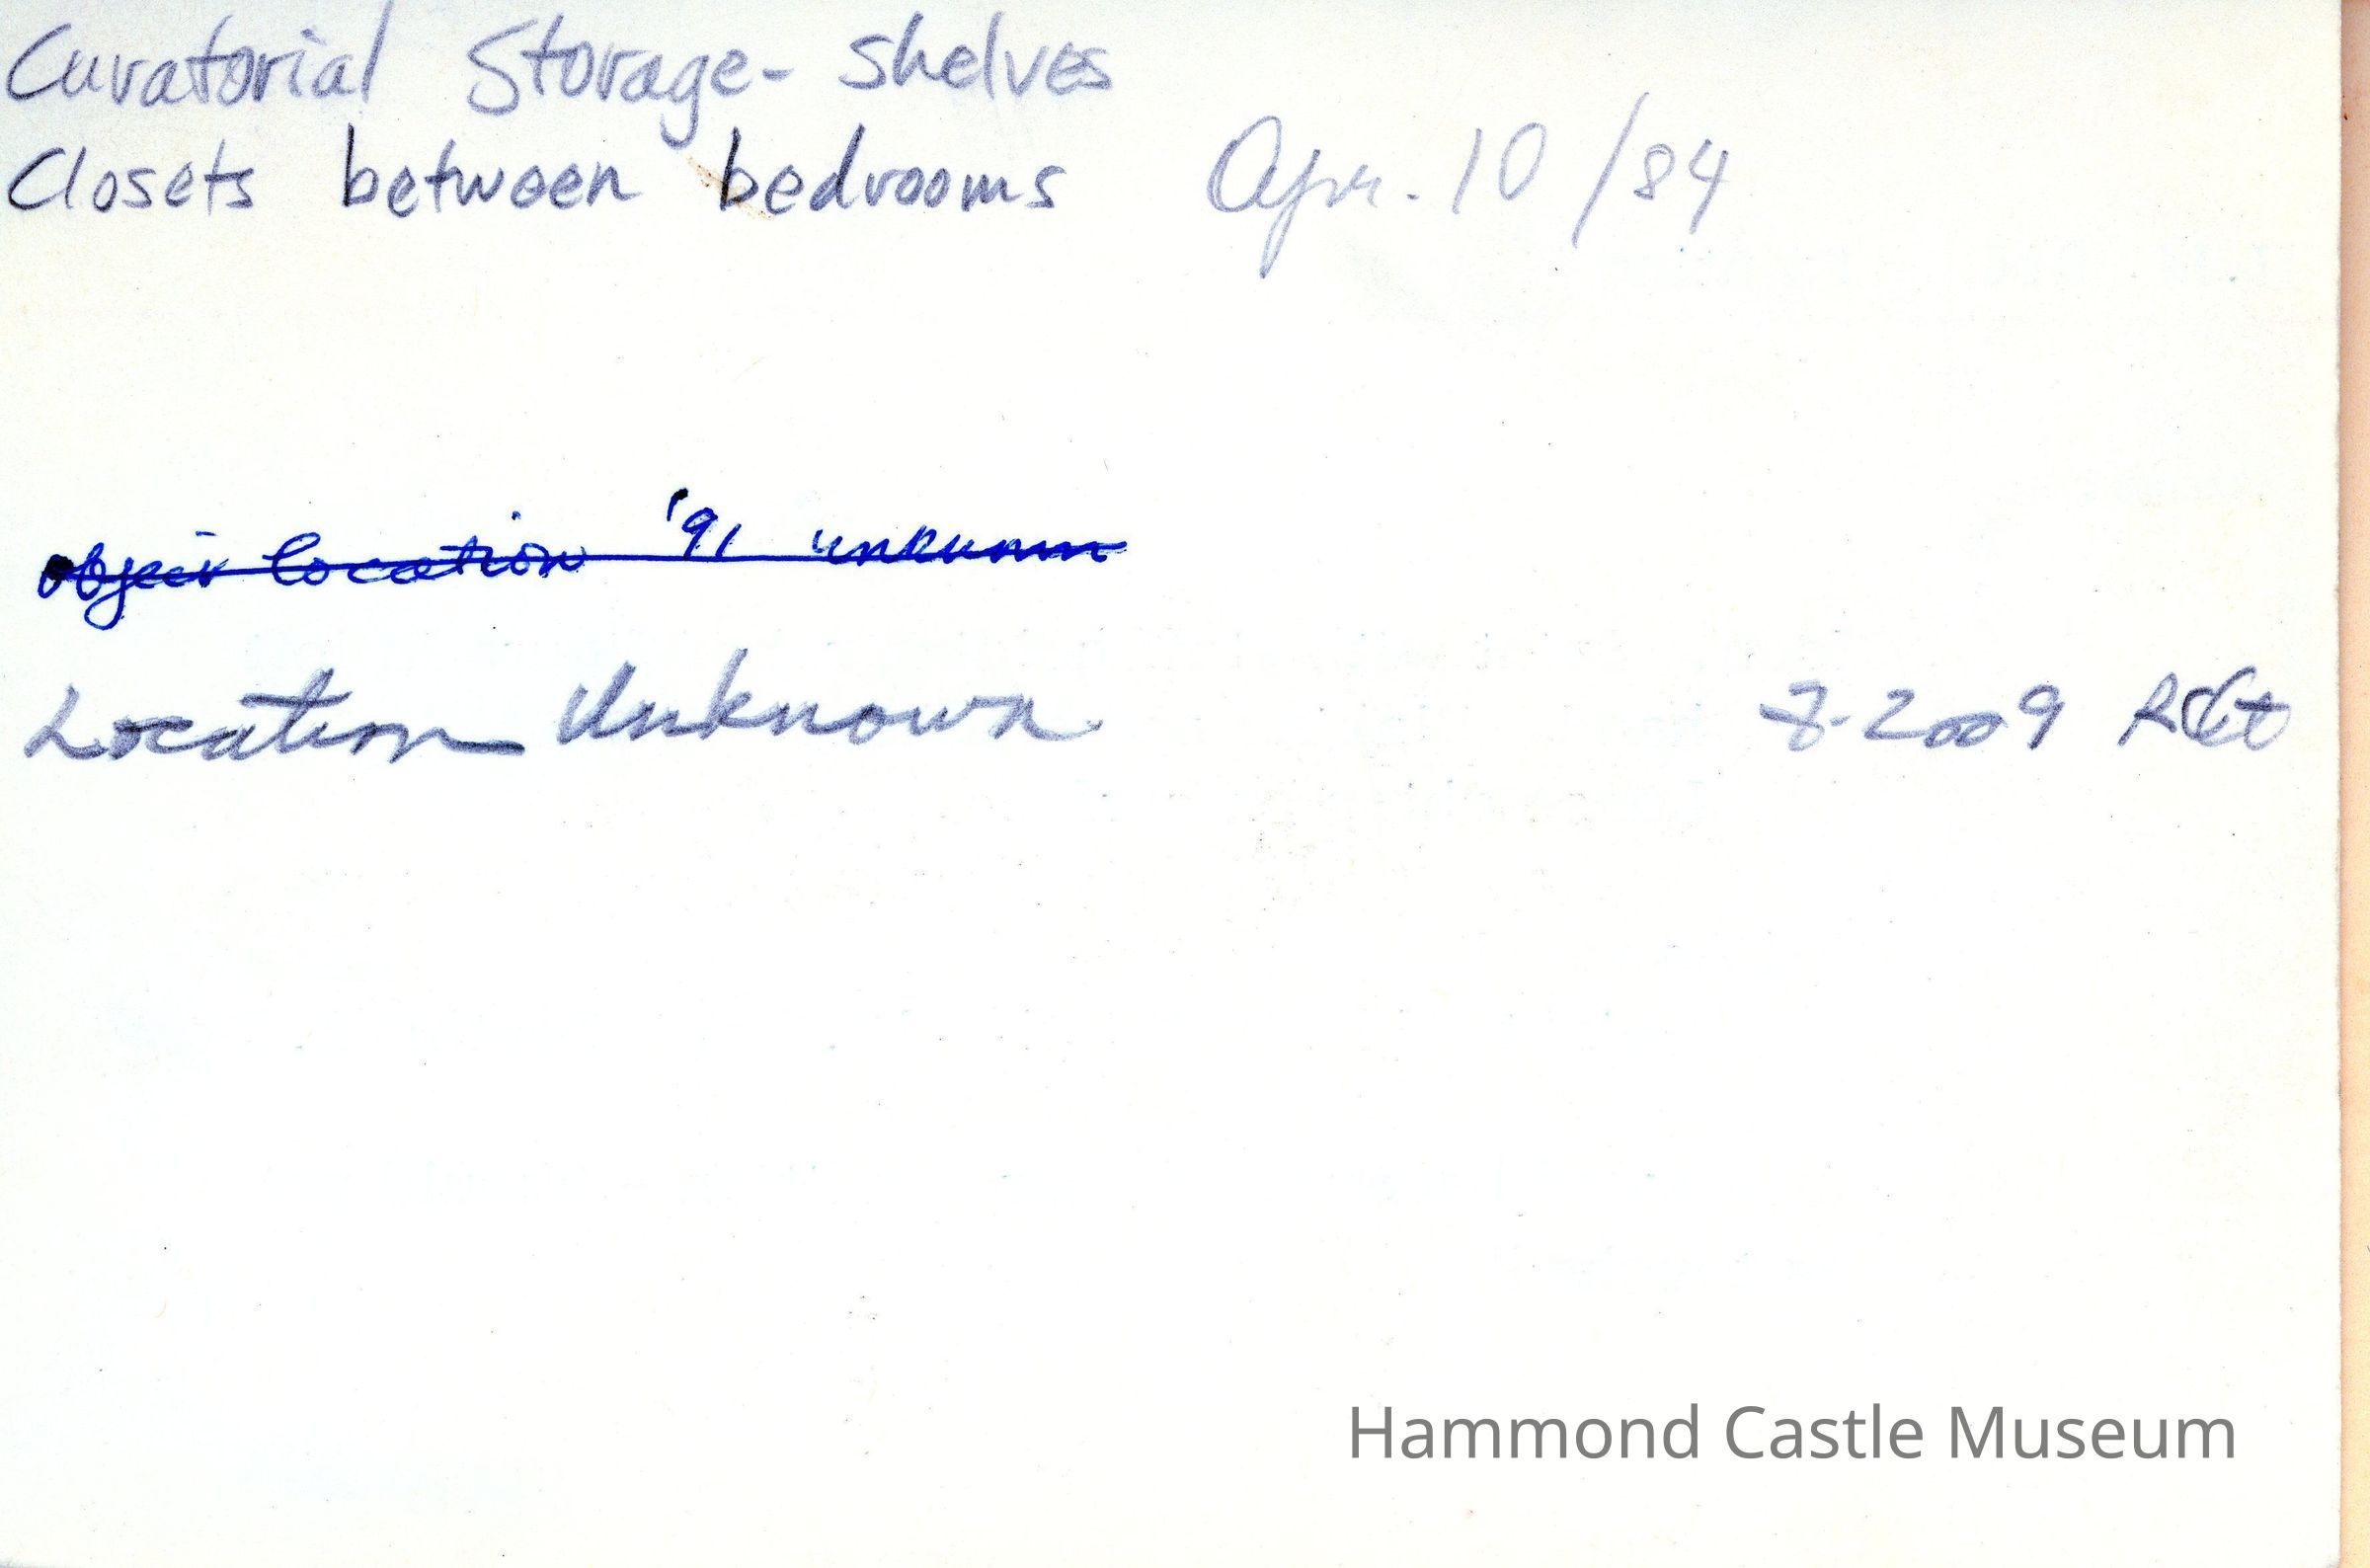 Curatorial Storage- Shelves
Closets between bedrooms Apr. 10 /84
object location '91 unknown
Location Unknown 8-2009
Hammond Castle Museum